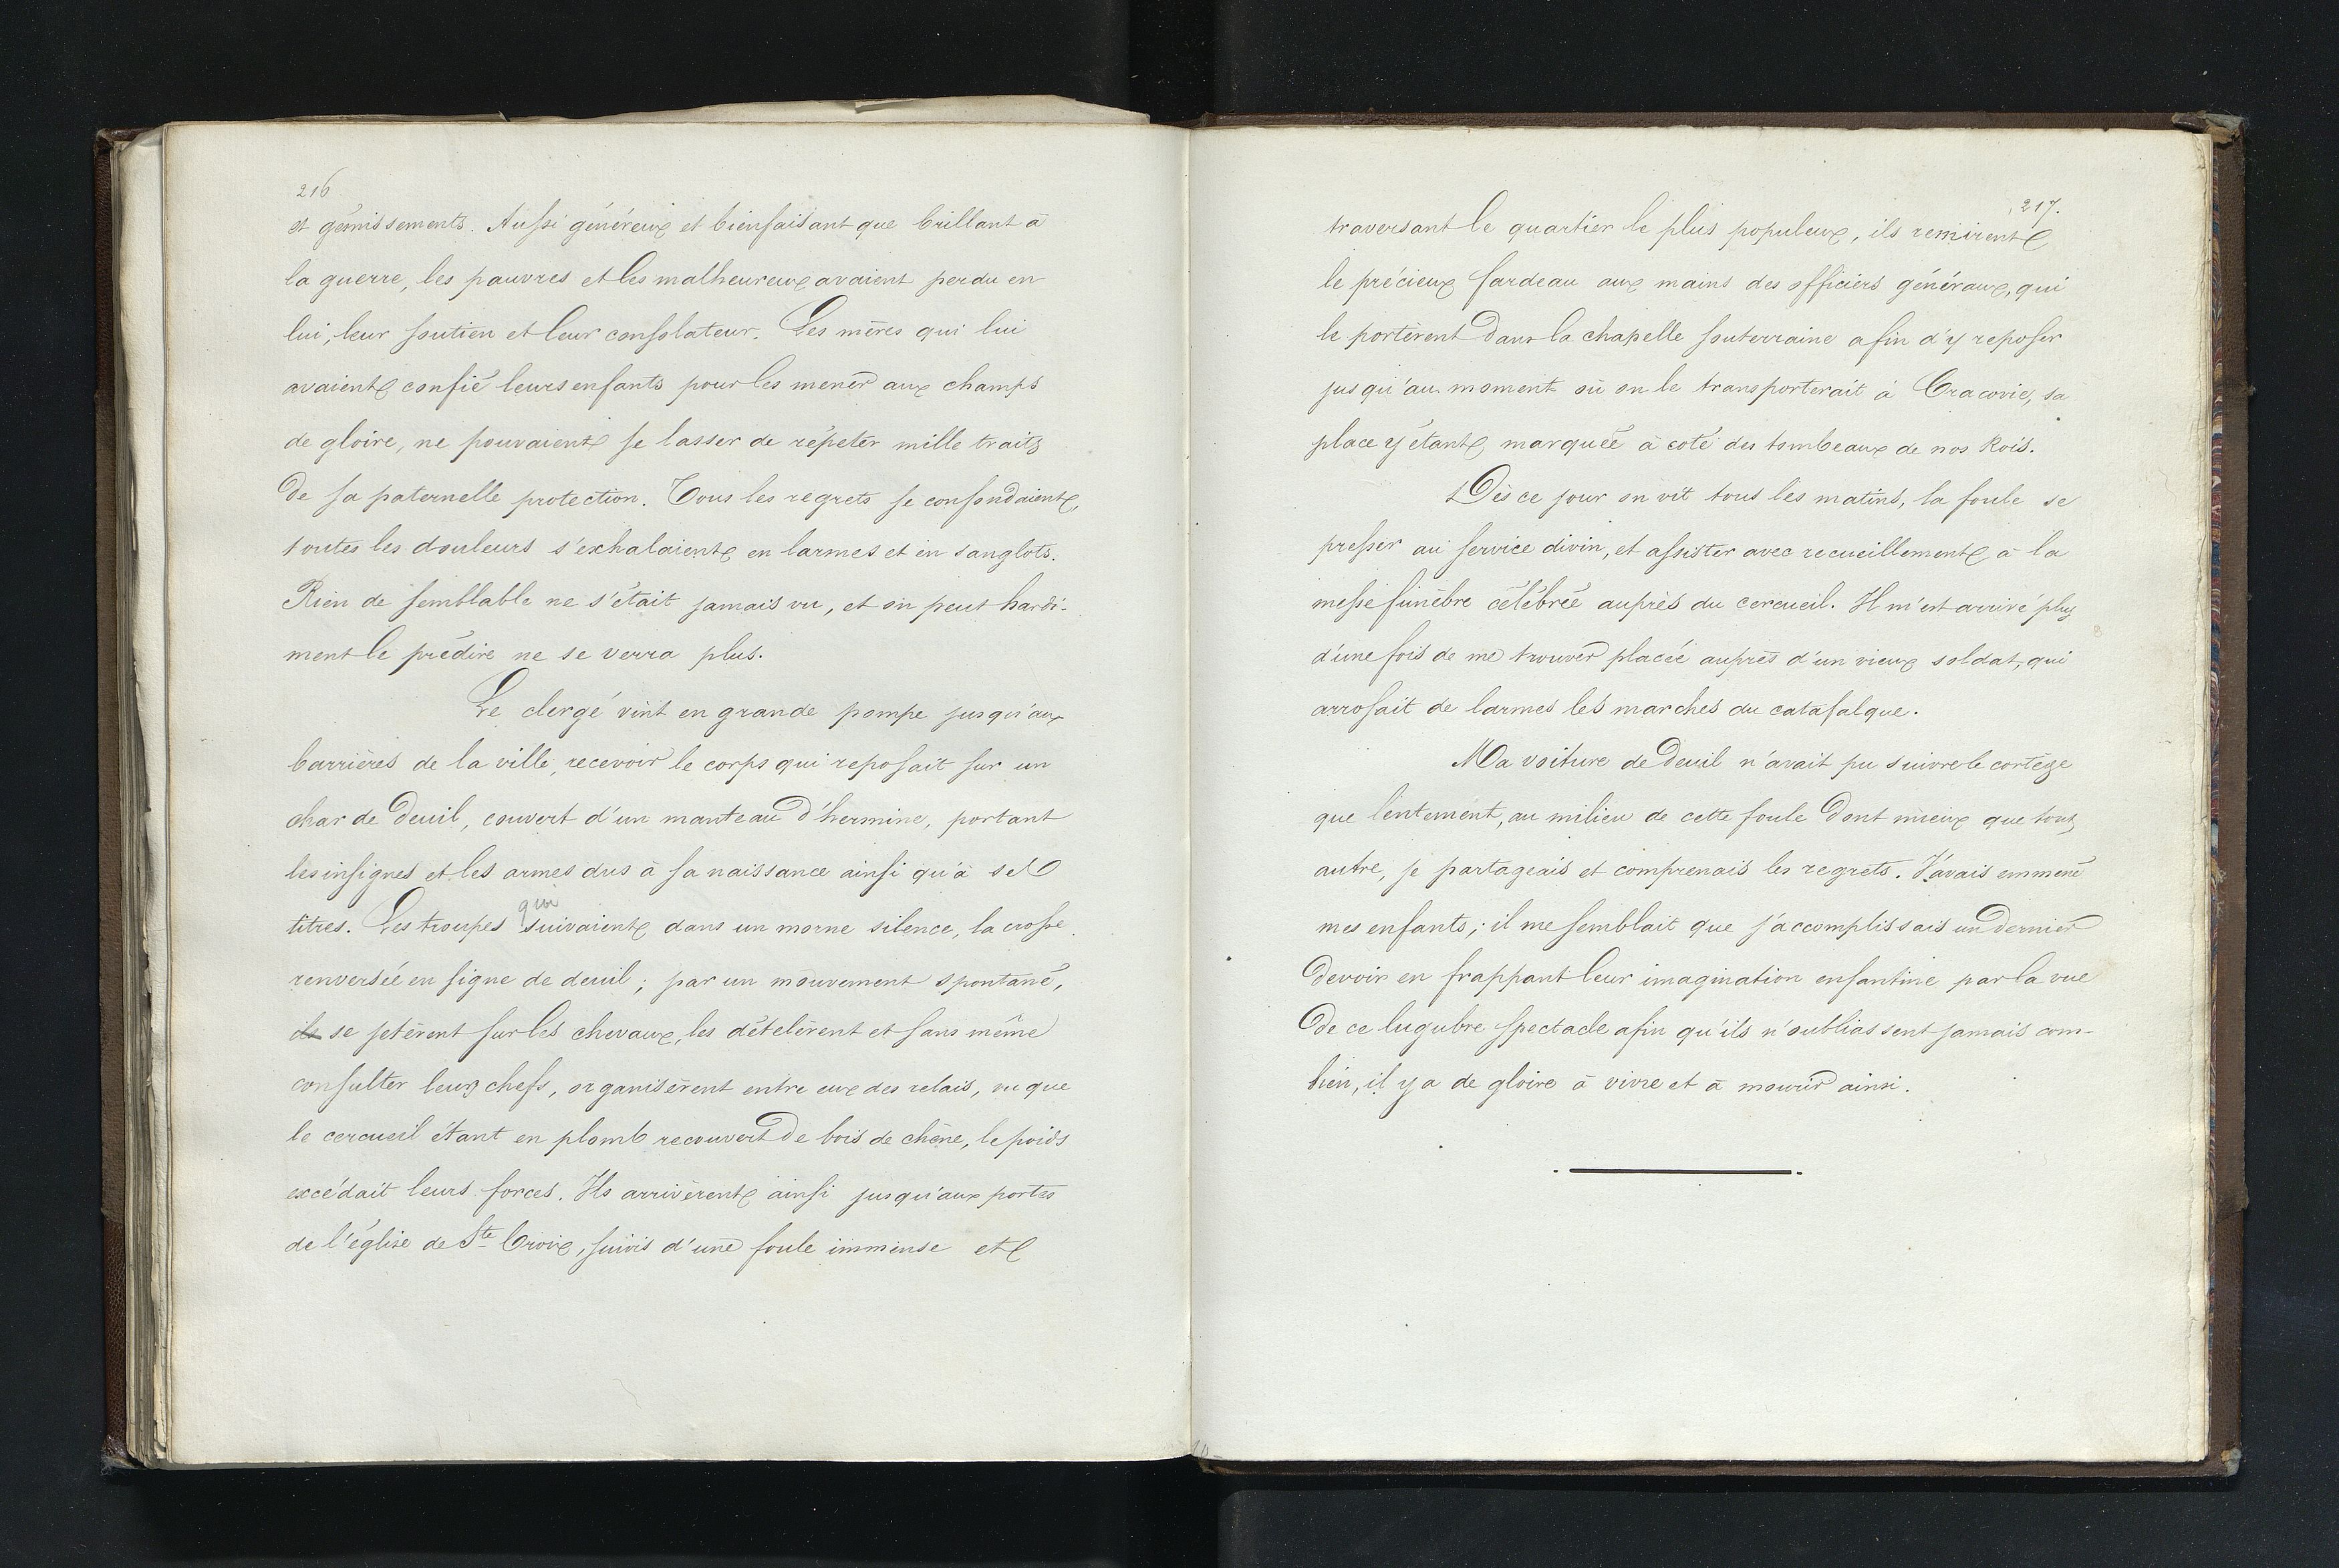 216
et gémissements. Aussi généreux et bienfaisant que brillant à
la guerre, les pauvres et les malheureux avaient perdu en
lui, leur soutien et leur consolateur. Les mères qui lui
avaient confié leurs enfants pour les mener aux champs
de gloire, ne pouvaient se lasser de répéter mille traits
de sa paternelle protection. Tous les regrets se confondaient,
toutes les douleurs s'exhalaient en larmes et en sanglots.
Rien de semblable ne s'était jamais vu, et on peut hardi-
ment le prédire ne se verra plus.
Le clergé vint en grande pompe jusqu'aux
barrières de la ville, recevoir le corps qui reposait sur un
char de deuil, couvert d'un manteau d'hermine, portant
les insignes et les armes dus à sa naissance ainsi qu'à ses
titres. Les troupes qui suivaient dans un morne silence, la crosse
renversée en signe de deuil; par un mouvement spontané,
ils se jetèrent sur les chevaux, les détélèrent et sans même
consulter leurs chefs, organisèrent entre eux des relais, vu que
le cercueil étant en plomb recouvert de bois de chêne, le poids
excédait leurs forces. Ils arrivèrent ainsi jusqu'aux portes
de l'église de Ste Croix, suivis d'une foule immense et
217.
traversant le quartier le plus populeux, ils remirent
le précieux fardeau aux mains des officiers généraux, qui
le portèrent dans la chapelle souterraine afin d'y reposer
jusqu'au moment où on le transporterait à Cracovie, sa
place y étant marquée à coté des tombeaux de nos Rois.
Dès ce jour on vit tous les matins, la foule se
presser au service divin, et assister avec recueillement à la
messe funèbre célébrée auprès du cercueil. Il m'est arrivé plus
d'une fois de me trouver placée auprès d'un vieux soldat, qui
arrosait de larmes les marches du catafalque.
Ma voiture de deuil n'avait pu suivre le cortège
que lentement, au milieu de cette foule dont mieux que tout
autre, je partageais et comprenais les regrets. J'avais emmené
mes enfants; il me semblait que j'accomplissais un dernier
devoir en frappant leur imagination enfantine par la vue
de ce lugubre spectacle afin qu'ils n'oubliassent jamais com-
bien, il y a de gloire à vivre et à mourir ainsi.